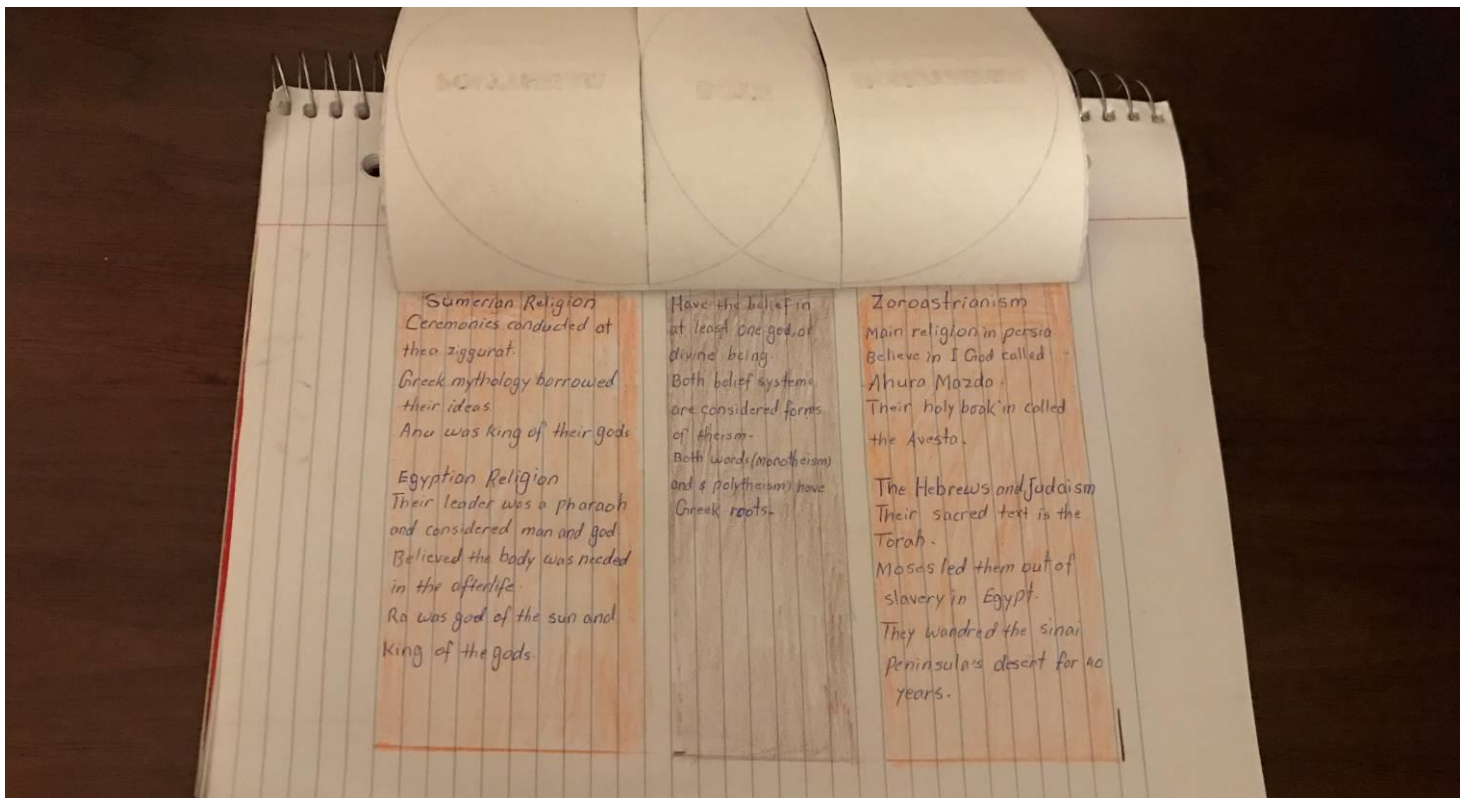 Sumerian Religion
Ceremonies conducted at
thea ziggurat.
Greek mythology borrowed
their ideas
Anu was king of their gods
Egyptian Religion
Their leader was a pharaoh
and considered man and god.
Believed the body was needed
in the afterlife.
Ra was god of the sun and
King of the gods.
Have the belief in
at least one god, or
divine being.
Both belief systems
are considered forms
of theism.
Both words (monotheism)
and $ polytheism) have
Greek roots.
Zoroastrianism
Main religion in persia
Believe in I God called
Ahura Mazda.
Their holy book in called
the Avesta.
The Hebrews and Judaism
Their sacred text is the
Torah.
Moses led them out of
slavery in Egypt.
They wandred the sinai
Peninsula's desert for 40
years.